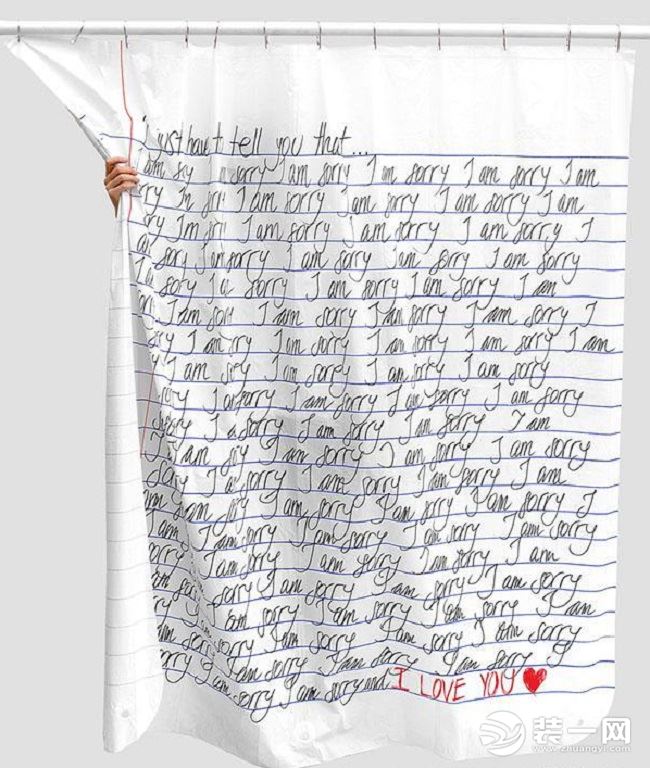 I just have to tell you that...
I am sry I am sorry I am sorry I am sorry I am sorry I am
sorry I'm sry I am sorry I am sorry I am sorry I am
sorry I'm sorry I am sorry I am sorry I am sorry I
am sorry I am sorry I am sorry I am sorry I am sorry
I am sorry I am sorry I am sorry I am
I am sorry I am sorry I am sorry I am sorry I
I am sry I am sorry I am sorry I am sorry I am
I am sry I am sorry I am sorry I am sorry
sorry I am sorry I am sorry I am sorry I am sorry
sorry I am sorry I am sorry I am sorry I am
I am sry I am sorry I am sorry I am sorry
sorry I am sorry I am sorry I am sorry I am
am sorry I am sorry I am sorry I am sorry I
am I am sorry I am sorry I am sorry I am sorry
sorry I am sorry I am sorry I am sorry I am
sorry I am sorry I am sorry I am sorry
sorry I am sorry I am sorry I am sorry I am
am sorry I am sorry I am sorry I am sorry
sorry I am sorry I am sorry I am sorry I
sorry I am sorry I am sorry and I LOVE YOU
装一网
www.zhuangyi.com